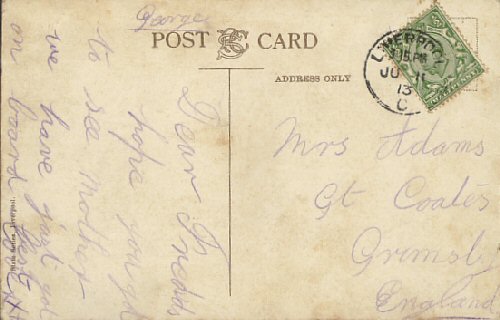 George
POST CARD
ADDRESS ONLY
LIVERPOOL
JU 11
13
C
Dear
hope you
to see Mother
we have just got
on board
Mrs Adams
Gt Coates
Grimsby
England